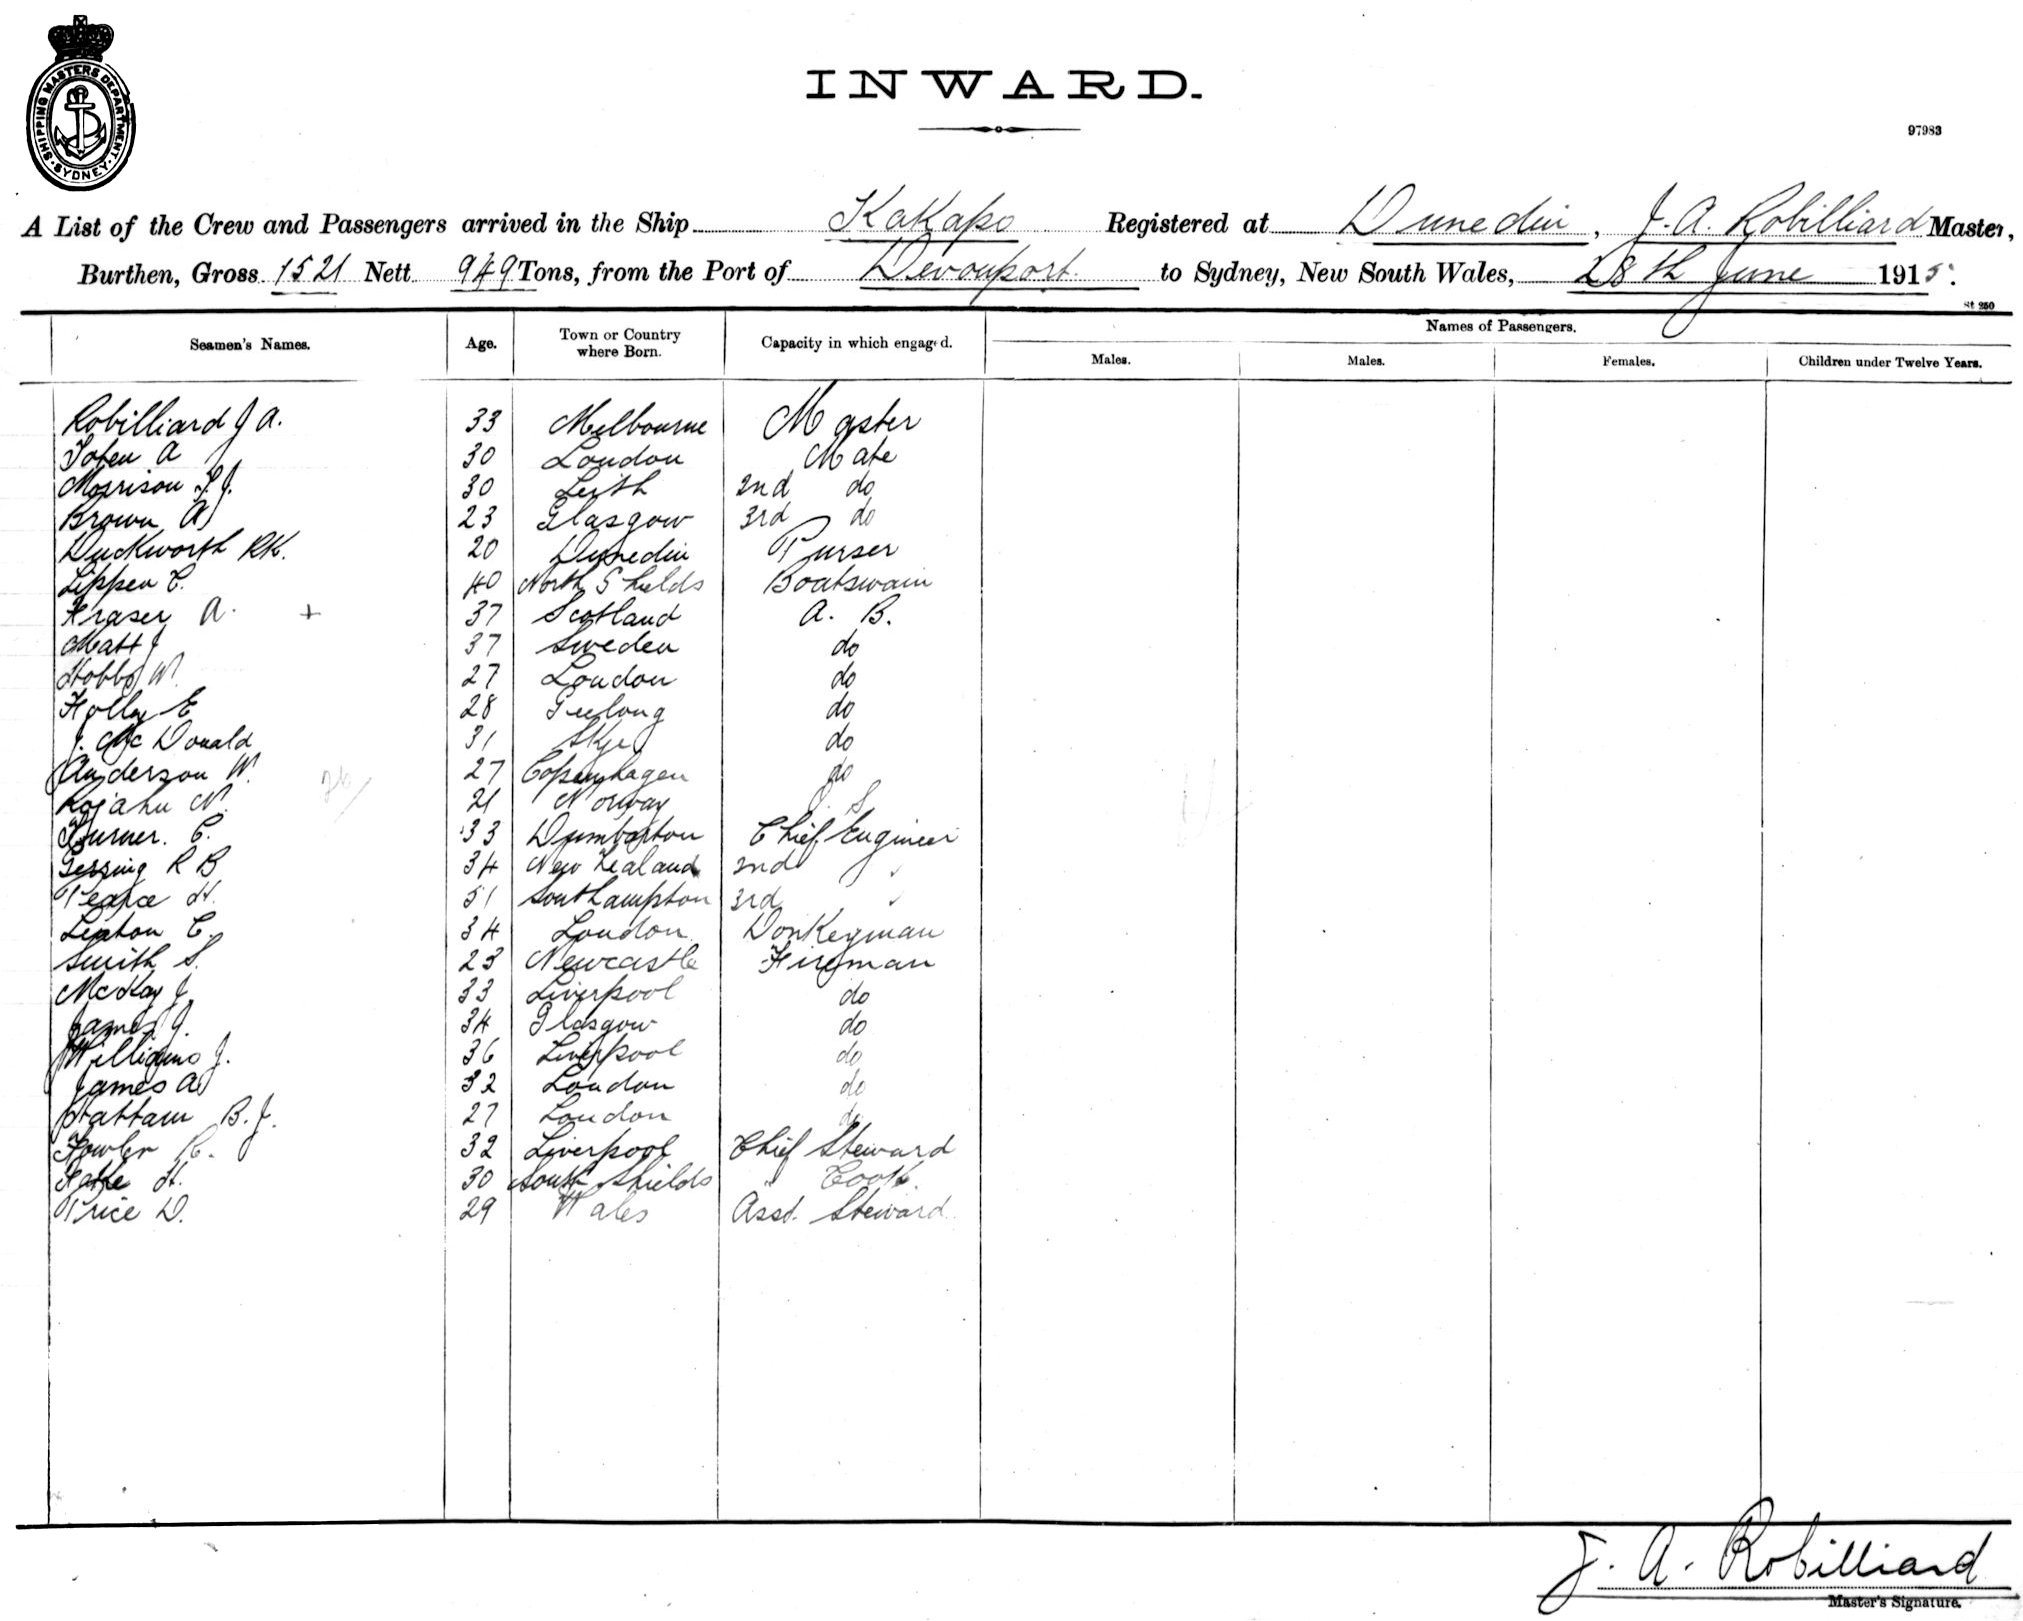 SHIPPING MASTERS DEPARTMENT · SYDNEY ·
INWARD.
97983
A List of the Crew and Passengers arrived in the Ship Kakapo Registered at Dunedin, J. A. Robilliard Master,
Burthen, Gross 1521 Nett 949 Tons, from the Port of Devonport to Sydney, New South Wales, 28th June 1915.
St 250
Seamen's Names. Age. Town or Country where Born. Capacity in which engaged. Names of Passengers.
Males. Males. Females. Children under Twelve Years.
Robilliard J A. 33 Melbourne Master
A 30 London Mate
Morrison J. 30 Leith 2nd do
Brown A 23 Glasgow 3rd do
Duckworth RK. 20 Dunedin Purser
Lippen C. 40 North Shields Boatswain
Fraser A. + 37 Scotland A. B.
Matt J 37 Sweden do
Hobbs W. 27 London do
Holley E 28 Geelong do
J. McDonald 31 Skye do
Anderson W. 27 Copenhagen do
N. 21 Norway
Turner. C. 33 Dumbarton Chief Engineer
R B 34 New Zealand 2nd
Pearce H. 51 Southampton 3rd
C. 34 London Donkeyman
Smith S. 23 Newcastle Fireman
McKay J. 33 Liverpool do
James J. 34 Glasgow do
Williams J. 36 Liverpool do
James A 32 London do
Hattam B. J. 27 London do
Fowler R. 32 Liverpool Chief Steward
H. 30 South Shields " Cook.
Price D. 29 Wales Asst. Steward
J. A. Robilliard
Master's Signature.